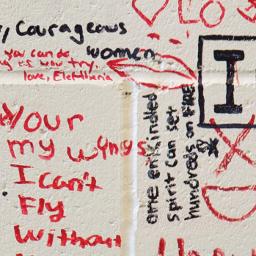 Courageous
women
you can do
try is now try.
love, Eleftheria
LO
I
Your
my wings
I can't
Fly
Without
one enkindled
spirit can set
hundreds on FIRE